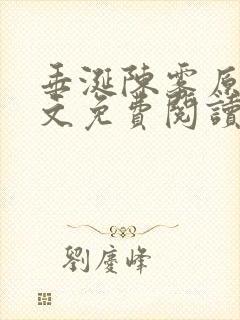 垂涎陳雾原
文免費閱讀
劉慶峰